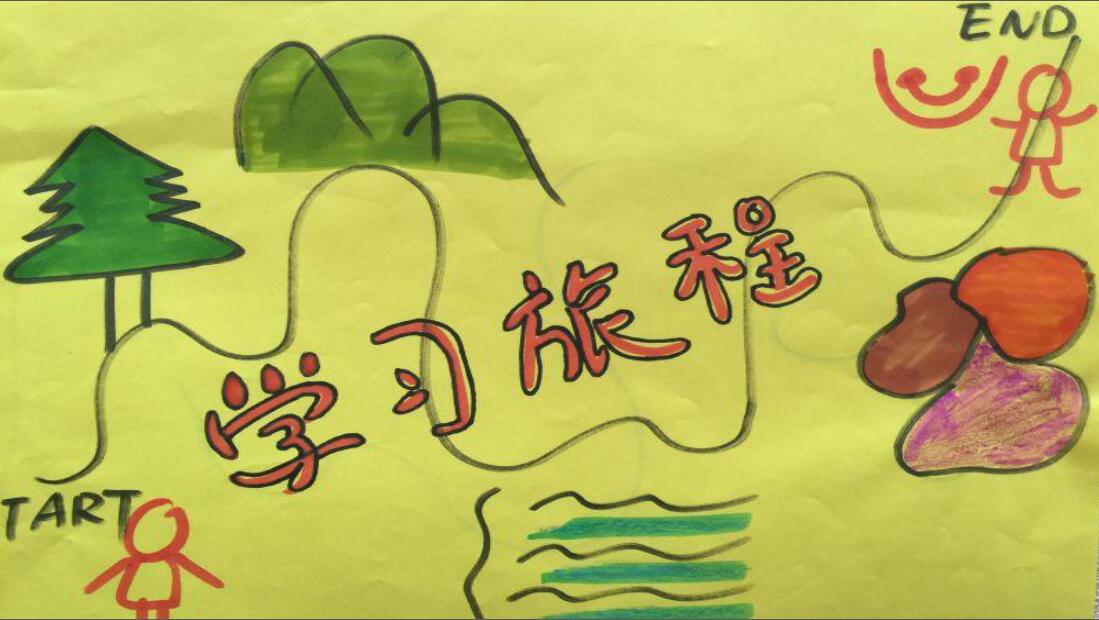 END
学习旅程
TART